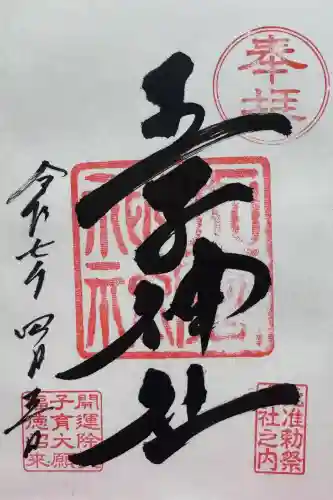 奉拝
王子神社
准勅祭
社之内
令和七年四月五日
開運除
子育大願
福徳招来